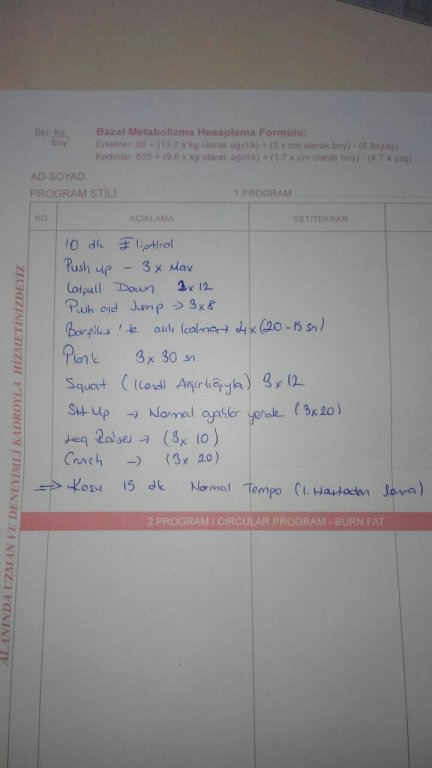 Bki: Kg
Boy²
Bazal Metabolizma Hesaplama Formülü:
Erkekler: 66 + (13.7 x kg olarak ağırlık) + (5 x cm olarak boy) - (6.8xyaş)
Kadınlar: 655 + (9.6 x kg olarak ağırlık) + (1.7 x cm olarak boy) - (4.7 x yaş)
AD-SOYAD:
PROGRAM STİLİ: 1.PROGRAM :
NO: AÇIKLAMA SET/TEKRAR
10 dk Eliptical
Push up - 3 x Max
Latpull Down 3x12
Push and Jump → 3x8
'te asılı kalma → 4x(20-15 sn)
Plank 3x30 sn
Squat (Kendi Ağırlığıyla) 3x12
Sit Up → Normal ayaklar yerde (3x20)
Leg Raises → (3x10)
Crunch → (3x20)
⇒ Koşu 15 dk Normal Tempo (1. Haftadan Sonra)
2.PROGRAM / CIRCULAR PROGRAM - BURN FAT
ALANINDA UZMAN VE DENEYİMLİ KADROYLA HİZMETİNİZDEYİZ